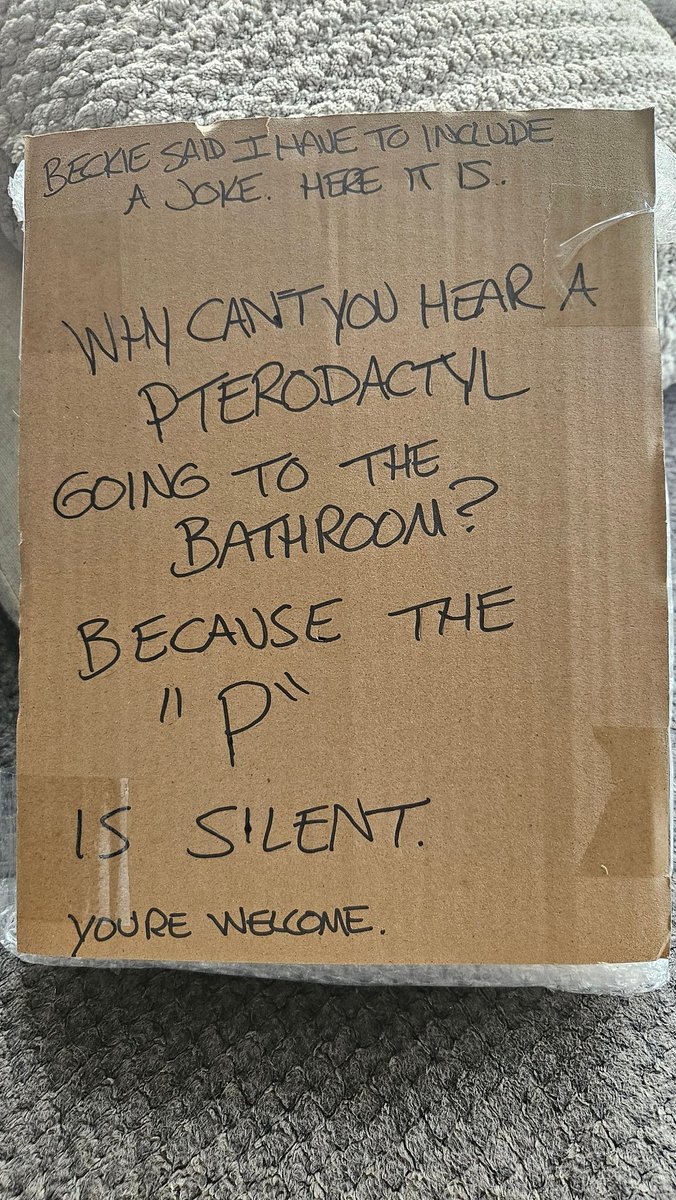 BECKIE SAID I HAVE TO INCLUDE
A JOKE. HERE IT IS.
WHY CAN'T YOU HEAR A
PTERODACTYL
GOING TO THE
BATHROOM?
BECAUSE THE
"P"
IS SILENT.
YOURE WELCOME.